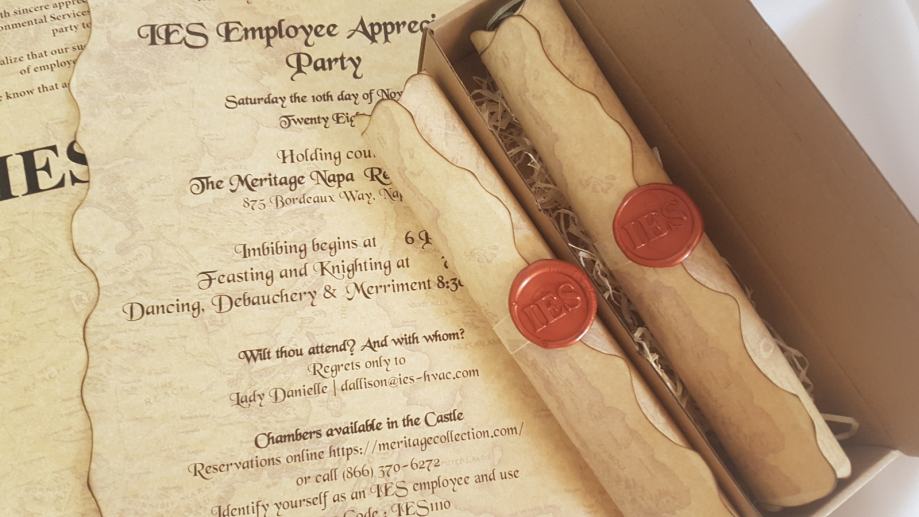 th sincere appre
onmental Services
party to
alize that our su
of employe
know that a
IES
IES Employee Appreci
Party
Saturday the 10th day of Nov
Twenty Eig
Holding cou
The Meritage Napa Re
875 Bordeaux Way, Nap
Imbibing begins at 6
Feasting and Knighting at
Dancing, Debauchery & Merriment 8:30
Wilt thou attend? And with whom?
Regrets only to
Lady Danielle | dallison@ies-hvac.com
Chambers available in the Castle
Reservations online https://meritagecollection.com/
or call (866) 370-6272
Identify yourself as an IES employee and use
Code : IES1110
IES
IES